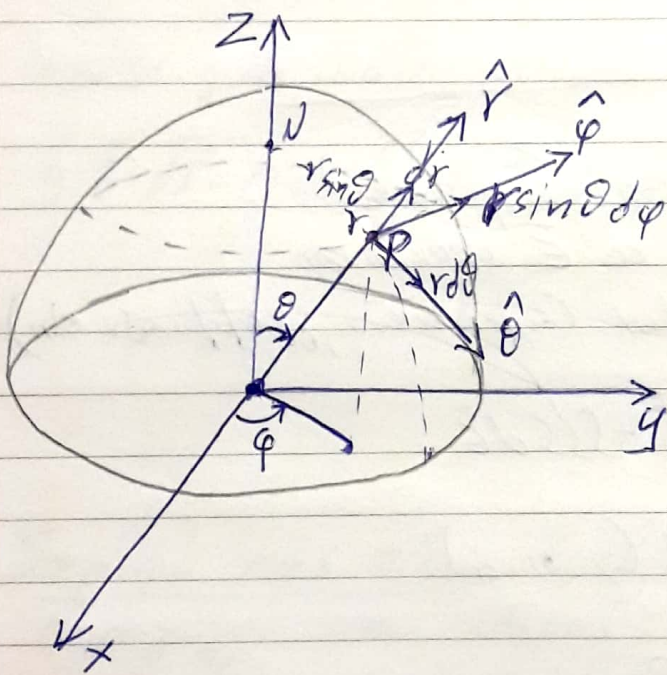 Z
N
r̂
φ̂
r sinθ
dr
r
r sinθ dφ
P
r dθ
θ
θ̂
φ
y
x